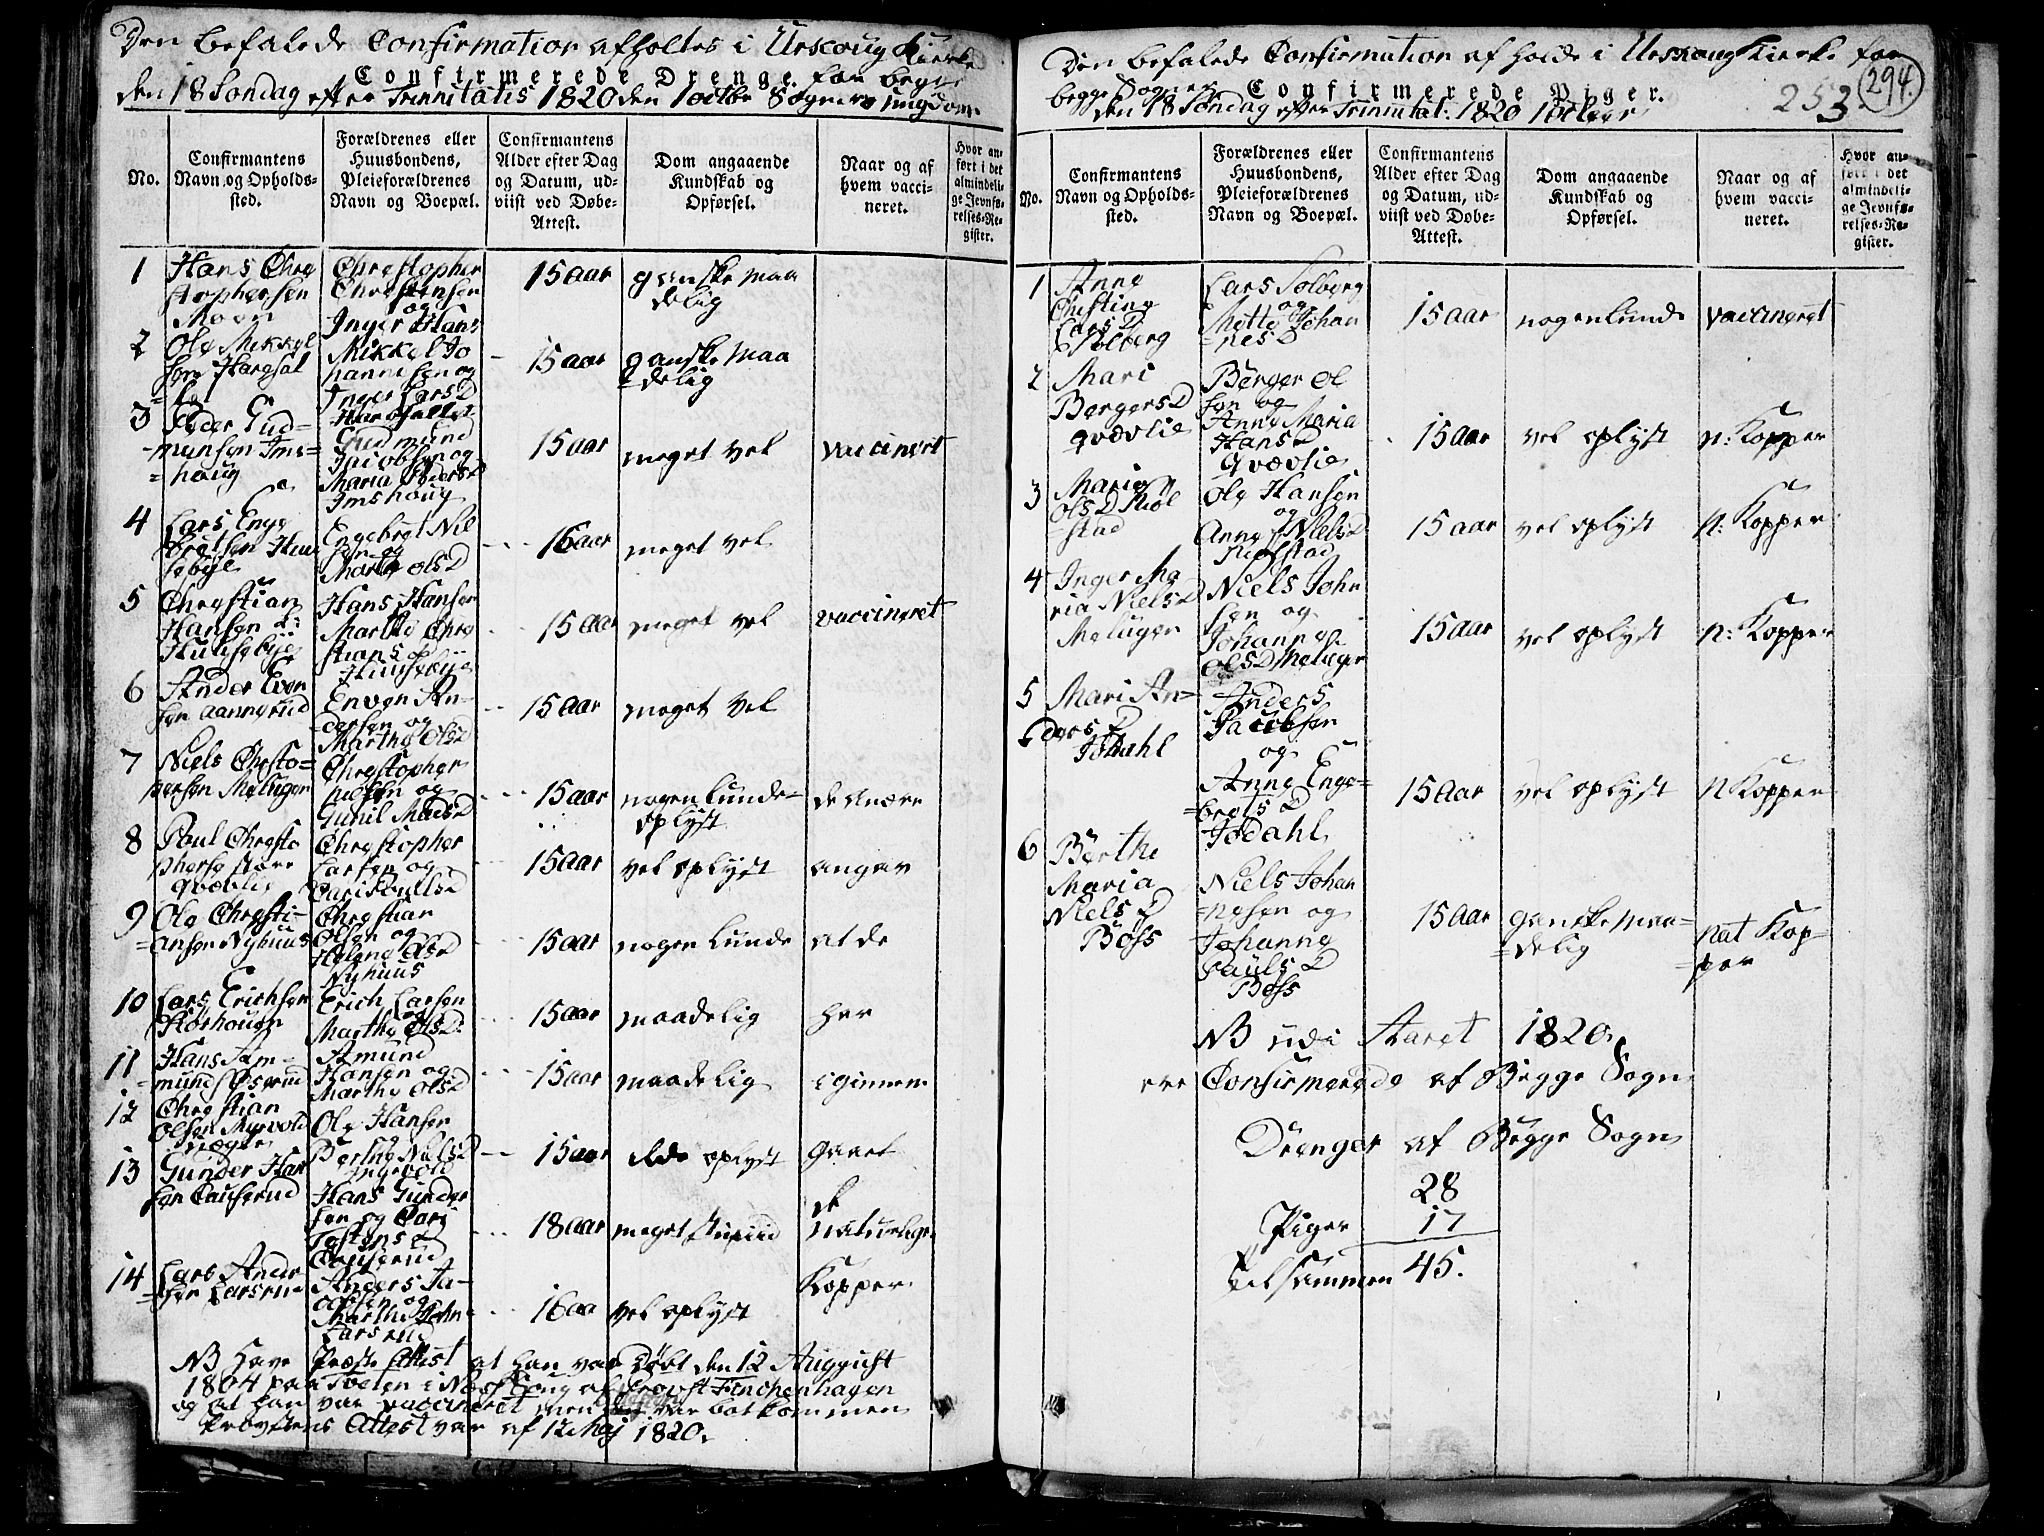 Den befalede Confirmation afholtes i Urskoug Kierke
Confirmerede Drenge. for begge
den 18 Søndag efter Trinitatis 1820 den 1 octbr Sogners ungdom
No.
Confirmantens Navn og Opholdssted.
Forældrenes eller Huusbondens, Pleieforældrenes Navn og Boepæl.
Confirmantens Alder efter Dag og Datum, udviist ved Døbe-Attest.
Dom angaaende Kundskab og Opførsel.
Naar og af hvem vaccineret.
Hvor anført i det almindelige Jevnførelses-Register.
1 Hans Chrestophersen Moen
Chrestopher Chrestensen og Inger Hans
15 aar
ganske maadelig
2 Ole Mikkelsen
Mikkel Johannesen og Inger Lars D
15 aar
ganske maadelig
3 Peder Gudmunsen Imshoug
Gudmund Jacobsen og Maria Peders D Imshoug
15 aar
meget vel
vaccineret
4 Lars Engebretsen Huusebye
Engebregt Nielsen og Marthe Ols D
16 aar
meget vel
5 Chrestian Hansen Huusebye
Hans Hansen Marthe Chrestians D Huusebye
15 aar
meget vel
vaccineret
6 Ander Evensen Aannerud
Even Andersen og Marthe Ols D
15 aar
meget vel
7 Niels Chrestophersen Melugen
Chrestopher Nilsen og Gunil Mads D
15 aar
nogenlunde oplyst
de andre
8 Poul Chrestophersen store Qvævlie
Chrestopher Larsen og Cari Poulls D
15 aar
vel oplyst
angav
9 Ole Chrestiansen Nyhuus
Chrestian Olsen og Helene Ols D Nyhuus
15 aar
nogenlunde
at de
10 Lars Erichsen
Erich Larsen og Marthe Ols D
15 aar
maadelig
har
11 Hans Amunds
Amund Hansen og Marthe Ols D
15 aar
maadelig
igiennem
12 Chrestian Olsen
Ole Hansen og Berthe Niels D
15 aar
ilde oplyst
gaaet
13 Gunder Hansen Causerud
Hans Gundersen og Cari Tostens D Causerud
18 aar
meget stupiid
de naturlige
14 Lars Andersen Larsrud
Anders Jacobsen og Marthe John Larsrud
16 aa
vel oplyst
Kopper
NB have Præste Attest at han var Døbt den 12 Auggust
1804 paa Tveten i Næs Soug af Provst Finchenhagen
og at han var vaccineret men var bortkommen
Provstens Attest var af 12 Maj 1820.
Den befalede Confirmation afholde i Urskoug Kierke for
begge Sogner Confirmerede Piger.
den 18 Søndag efter Trinitat: 1820 1 octbr
253
294.
No.
Confirmantens Navn og Opholdssted.
Forældrenes eller Huusbondens, Pleieforældrenes Navn og Boepæl.
Confirmantens Alder efter Dag og Datum, udviist ved Døbe-Attest.
Dom angaaende Kundskab og Opførsel.
Naar og af hvem vaccineret.
Hvor anført i det almindelige Jevnførelses-Register.
1 Anne Chestine Lars D Solberg
Lars Solberg og Mette Johannes D
15 aar
nogenlunde
vaccineret
2 Mari Bergers D Qvævlie
Berger Olsen og Anne Maria Hans D Qvævlie
15 aar
vel oplyst
n: Kopper
3 Marie Ols D Kiølstad
Ole Hansen og Anne Niels D Kiølstad
15 aar
vel oplyst
n: Kopper
4 Inger Maria Niels D Melugen
Niels Johnsen og Johanne Ols D Melugen
15 aar
vel oplyst
n: Kopper
5 Mari Anders D Jødahl
Anders Jacobsen og Anne Engebrets D Jødahl
15 aar
vel oplyst
n Kopper
6 Berthe Maria Niels D Bøss
Niels Johannesen og Johanne Pauls D Bøss
15 aar
ganske maadelig
nat Kopper
NB udi Aaret 1820
ere Confirmerede af Begge Sogne
Drenger af Begge Sogne
28
Piger 17
tilsammen 45.